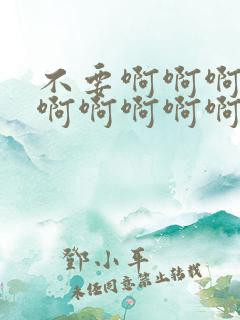 不要啊啊啊
啊啊啊啊啊
鄧小平
未经同意禁止转载